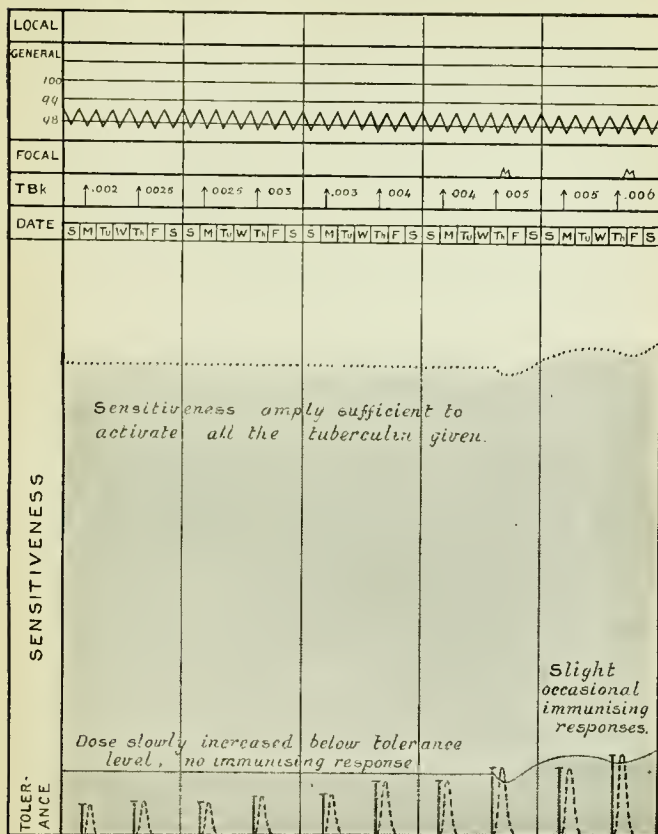 LOCAL
GENERAL
100
99
98
FOCAL
TBk ↑.002 ↑0025 ↑0025 ↑003 ↑.003 ↑.004 ↑.004 ↑005 ↑005 ↑.006
DATE S M Tu W Th F S S M Tu W Th F S S M Tu W Th F S S M Tu W Th F S S M Tu W Th F S
Sensitiveness amply sufficient to
activate all the tuberculin given.
SENSITIVENESS
Slight
occasional
immunising
responses.
Dose slowly increased below tolerance
level, no immunising response
TOLER-
ANCE